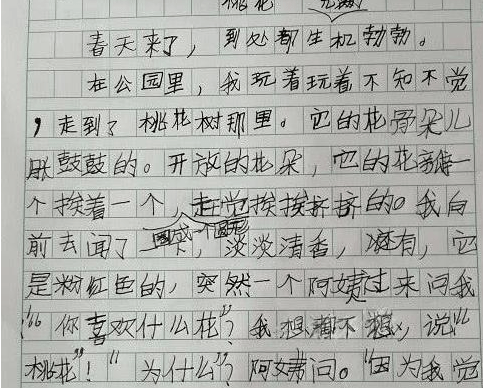 桃花
春天来了，到处都生机勃勃。
在公园里，我玩着玩着不知不觉
，走到了桃花树那里。它的花骨朵儿
胀鼓鼓的。开放的花朵，它的花瓣一
个挨着一个，挨挨挤挤的。我向
围成一个圆形
前去闻了，淡淡清香，还有，它
是粉红色的，突然一个阿姨过来问我
“你喜欢什么花”？我想都不想，说“
桃花”！“为什么”？阿姨问。“因为我觉